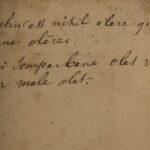 nihil olere qu
ne olere.
i semper bene olet n
male olet.